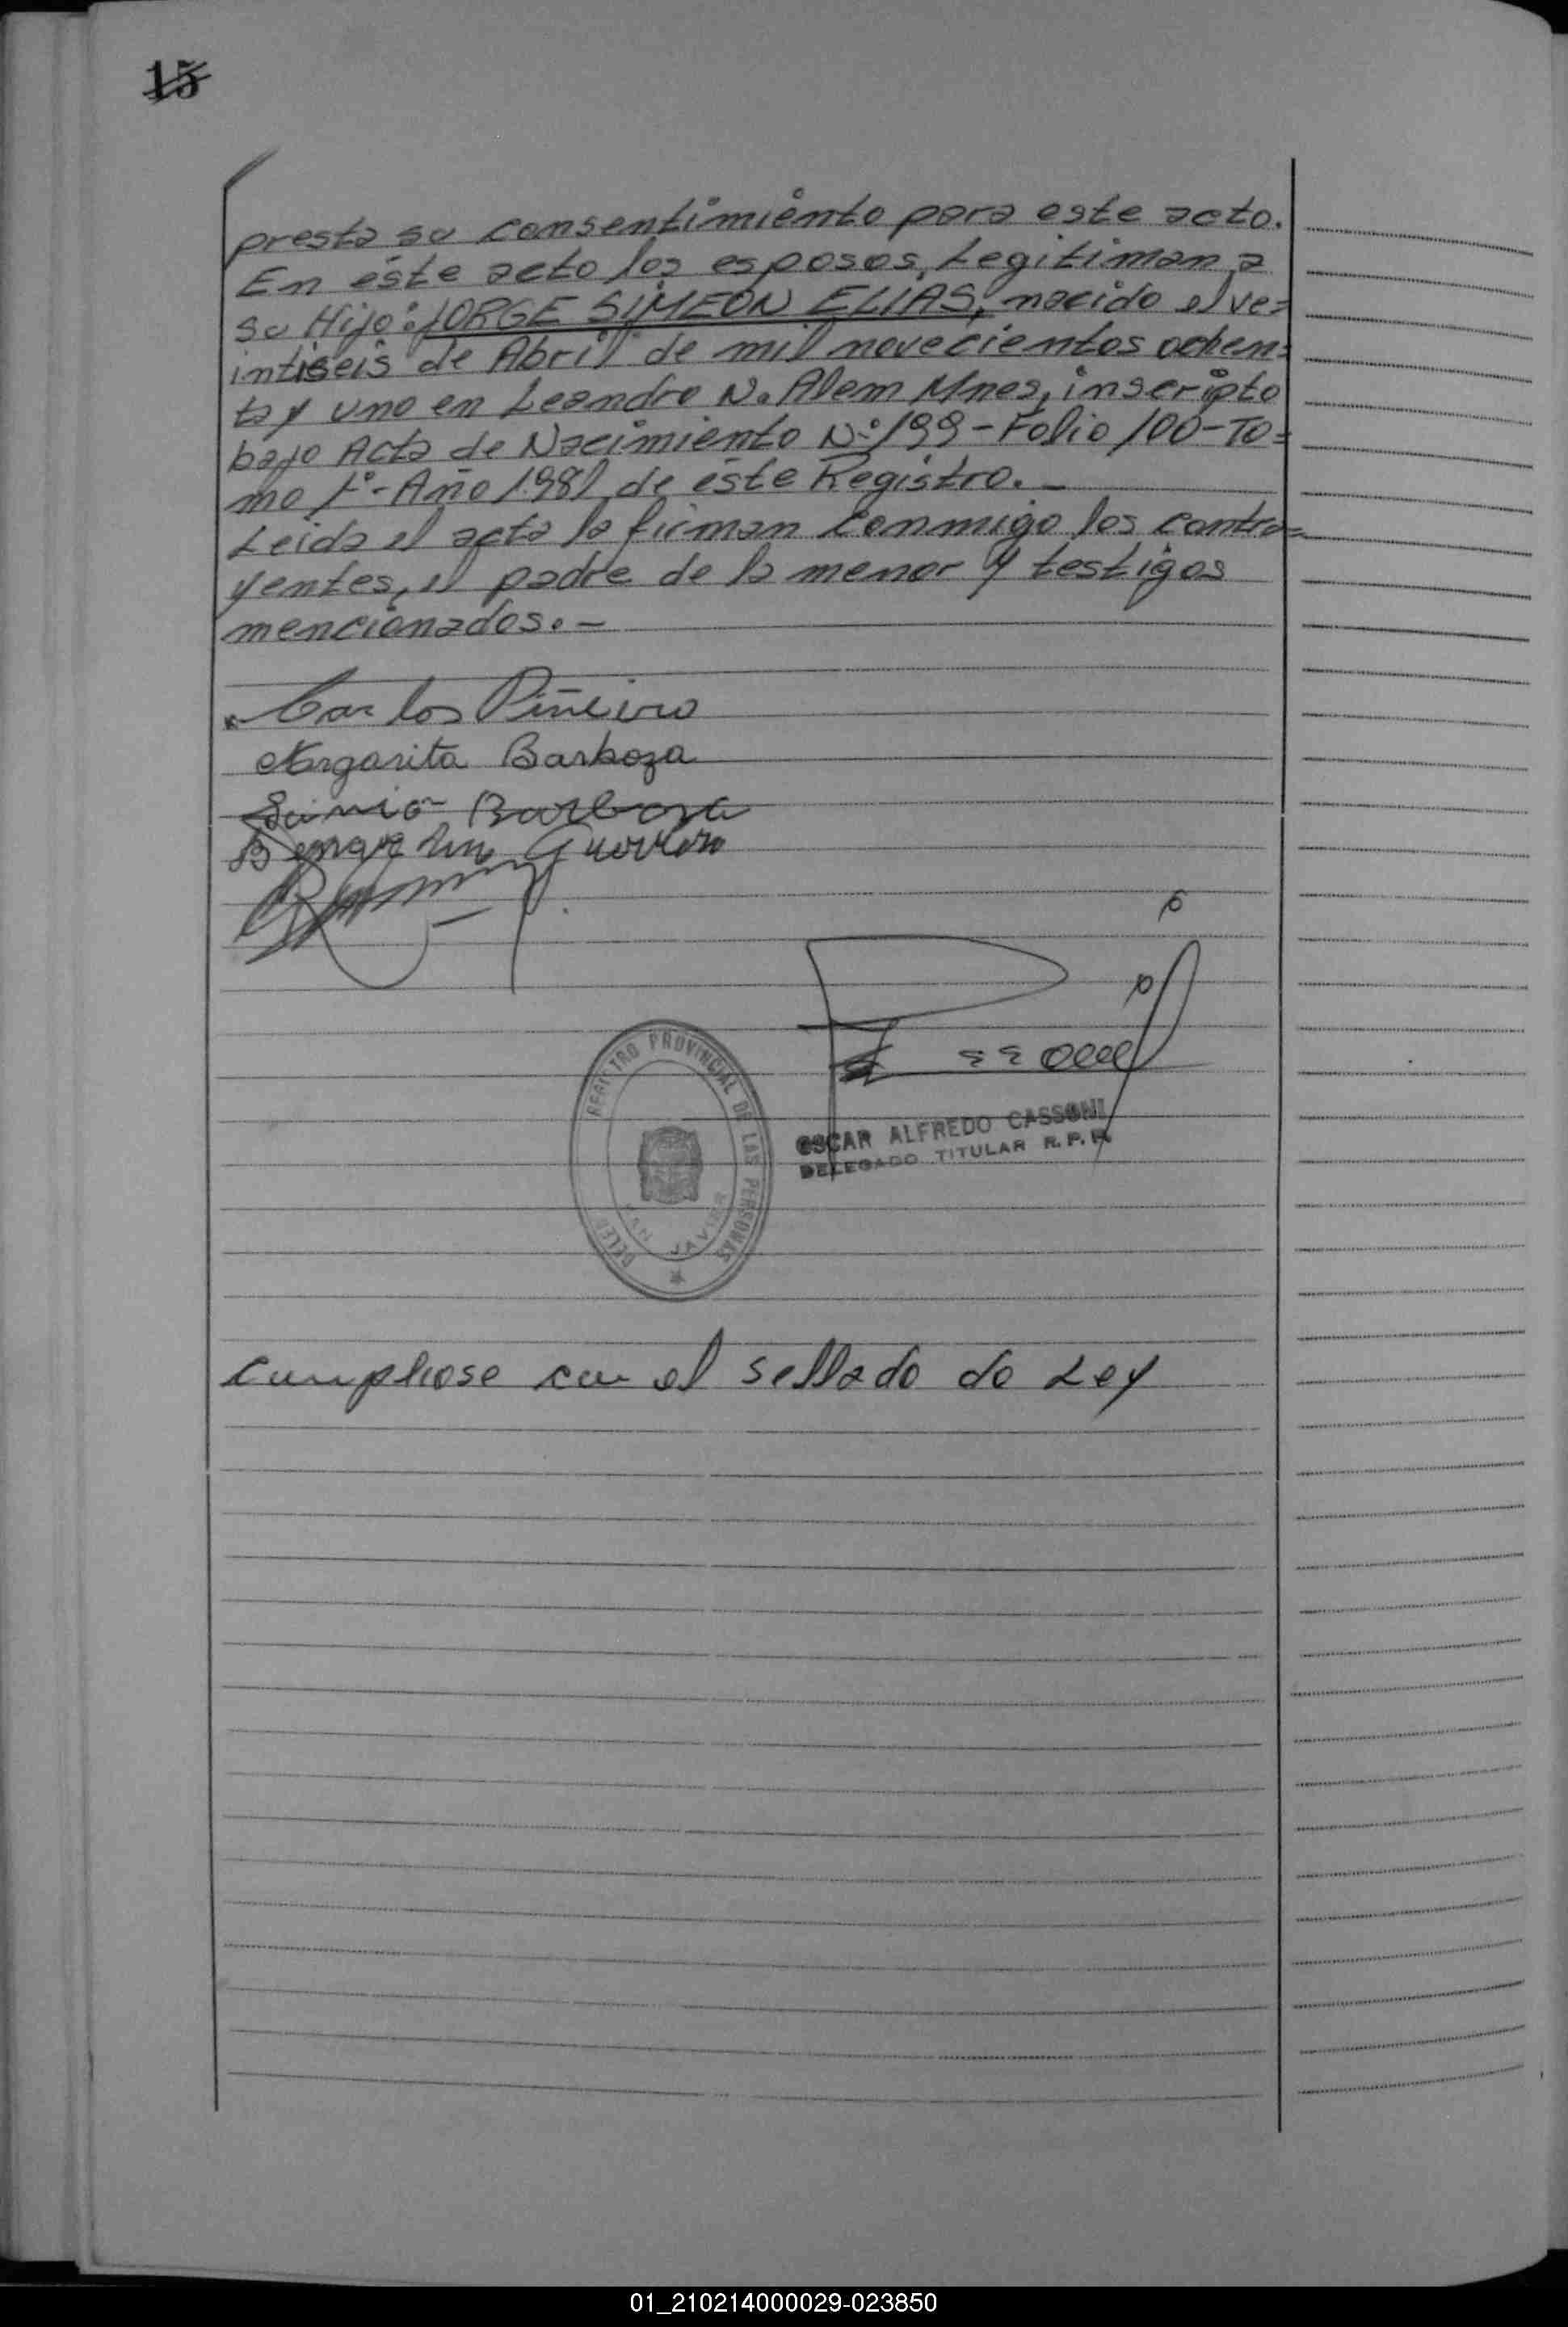 15
presta su consentimiento para este acto.
En éste acto los esposos, Legitiman a
su Hijo: JORGE SIMEON ELIAS, nacido el ve=
intiseis de Abril de mil novecientos ochen=
ta y uno en Leandro N. Alem Mnes, inscripto
bajo Acta de Nacimiento Nº 199 - Folio 100 - To=
mo 1º - Año 1.981, de éste Registro. -
Leida el acta la firman conmigo los contra=
yentes, el padre de la menor y testigos
mencionados. -
Carlos Piñeiro
Margarita Barboza
Barboza
REGISTRO PROVINCIAL DE LAS PERSONAS
DELEG
SAN JAVIER
OSCAR ALFREDO CASSONI
DELEGADO TITULAR R.P.P.
Cumpliose con el sellado de Ley
01_210214000029-023850